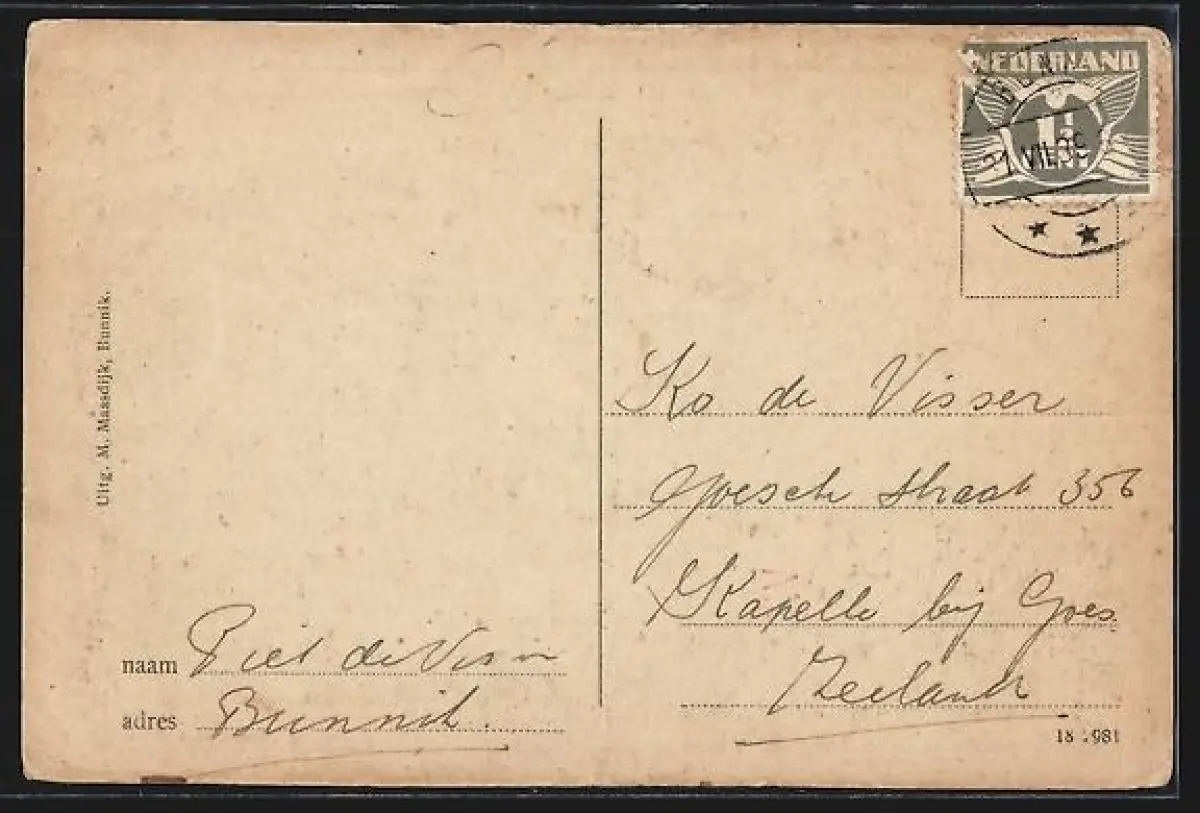 NEDERLAND
1½
BUN
21 VII.3
Uitg. M. Maasdijk, Bunnik.
Ko de Visser
Goesch straat 356
Kapelle bij Goes
Zeeland
naam Piet de Visser
adres Bunnik.
18 981